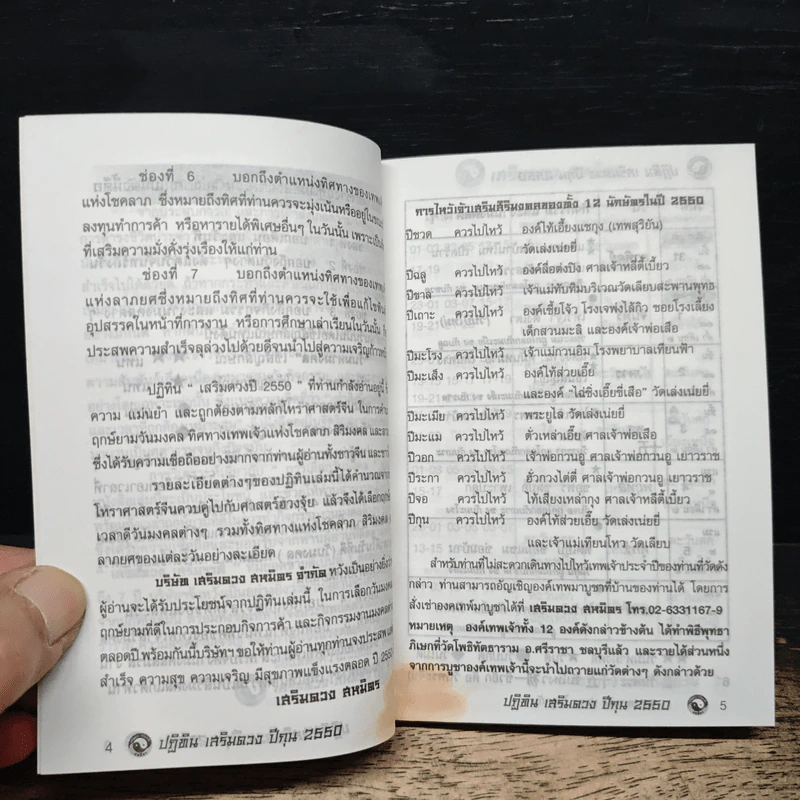 ช่องที่ 6 บอกถึงตำแหน่งทิศทางของเทพ
แห่งโชคลาภ ซึ่งหมายถึงทิศที่ท่านควรจะมุ่งเน้นหรืออยู่ใน
ลงทุนทำการค้า หรือหารายได้พิเศษอื่นๆ ในวันนั้น เพราะเป็น
ที่เสริมความมั่งคั่งรุ่งเรืองให้แก่ท่าน
ช่องที่ 7 บอกถึงตำแหน่งทิศทางของเทพ
แห่งลาภยศซึ่งหมายถึงทิศที่ท่านควรจะใช้เพื่อแก้ไข
อุปสรรคในหน้าที่การงาน หรือการศึกษาเล่าเรียนในวันนั้น
ประสพความสำเร็จลุล่วงไปด้วยดีจนนำไปสู่ความเจริญก้าวหน้า
ปฏิทิน " เสริมดวงปี 2550 " ที่ท่านกำลังอ่านอยู่นี้
ความ แม่นยำ และถูกต้องตามหลักโหราศาสตร์จีน ในการ
ฤกษ์ยามวันมงคล ทิศทางเทพเจ้าแห่งโชคลาภ สิริมงคล และ
ซึ่งได้รับความเชื่อถืออย่างมากจากท่านผู้อ่านทั้งชาวจีน และ
รายละเอียดต่างๆของปฏิทินเล่มนี้ได้คำนวณจาก
โหราศาสตร์จีนควบคู่ไปกับศาสตร์ฮวงจุ้ย แล้วจึงได้เลือก
เวลาดีวันมงคลต่างๆ รวมทั้งทิศทางแห่งโชคลาภ สิริมงคล
ลาภยศของแต่ละวันอย่างละเอียด
บริษัท เสริมดวง สหมิตร จำกัด หวังเป็นอย่างยิ่ง
ผู้อ่านจะได้รับประโยชน์จากปฏิทินเล่มนี้ ในการเลือกวันมงคล
ฤกษ์ยามที่ดีในการประกอบกิจการค้า และกิจกรรมงานมงคล
ตลอดปี พร้อมกันนี้บริษัทฯ ขอให้ท่านผู้อ่านทุกท่านจงประสพ
สำเร็จ ความสุข ความเจริญ มีสุขภาพแข็งแรงตลอด ปี 2550
เสริมดวง สหมิตร
4 ปฏิทิน เสริมดวง ปีกุน 2550
การไหว้เจ้าเสริมสิริมงคลของทั้ง 12 นักษัตรในปี 2550
ปีชวด ควรไปไหว้ องค์ไท้เอี้ยงแชกุง (เทพสุริยัน)
วัดเล่งเน่ยยี่
ปีฉลู ควรไปไหว้ องค์ลื่อต่งปิง ศาลเจ้าหลีตี้เบี้ยว
ปีขาล ควรไปไหว้ เจ้าแม่ทับทิมบริเวณวัดเลียบสะพานพุทธ
ปีเถาะ ควรไปไหว้ องค์เซี้ยโจ้ว โรงเจฟงไล้กิว ซอยโรงเลี้ยง
เด็กสวนมะลิ และองค์เจ้าพ่อเสือ
ปีมะโรง ควรไปไหว้ เจ้าแม่กวนอิม โรงพยาบาลเทียนฟ้า
ปีมะเส็ง ควรไปไหว้ องค์ไท้ส่วยเอี๊ย
และองค์ "ไฉ่ซิ่งเอี๊ยชี่เสือ" วัดเล่งเน่ยยี่
ปีมะเมีย ควรไปไหว้ พระยูไล่ วัดเล่งเน่ยยี่
ปีมะแม ควรไปไหว้ ตั่วเหล่าเอี๊ย ศาลเจ้าพ่อเสือ
ปีวอก ควรไปไหว้ เจ้าพ่อกวนอู ศาลเจ้าพ่อกวนอู เยาวราช
ปีระกา ควรไปไหว้ ฮั้วกวงไต่ตี่ ศาลเจ้าพ่อกวนอู เยาวราช
ปีจอ ควรไปไหว้ ไท้เสียงเหล่ากุง ศาลเจ้าหลีตี้เบี้ยว
ปีกุน ควรไปไหว้ องค์ไท้ส่วยเอี๊ย วัดเล่งเน่ยยี่
และเจ้าแม่เทียนโหว วัดเลียบ
สำหรับท่านที่ไม่สะดวกเดินทางไปไหว้เทพเจ้าประจำปีของท่านที่วัดดัง
กล่าว ท่านสามารถอัญเชิญองค์เทพมาบูชาที่บ้านของท่านได้ โดยการ
สั่งเช่าองค์เทพ์มาบูชาได้ที่ เสริมดวง สหมิตร โทร.02-6331167-9
หมายเหตุ องค์เทพเจ้าทั้ง 12 องค์ดังกล่าวข้างต้น ได้ทำพิธีพุทธา
ภิเษกที่วัดโพธิทัตธาราม อ.ศรีราชา ชลบุรีแล้ว และรายได้ส่วนหนึ่ง
จากการบูชาองค์เทพเจ้านี้จะนำไปถวายแก่วัดต่างๆ ดังกล่าวด้วย
ปฏิทิน เสริมดวง ปีกุน 2550 5